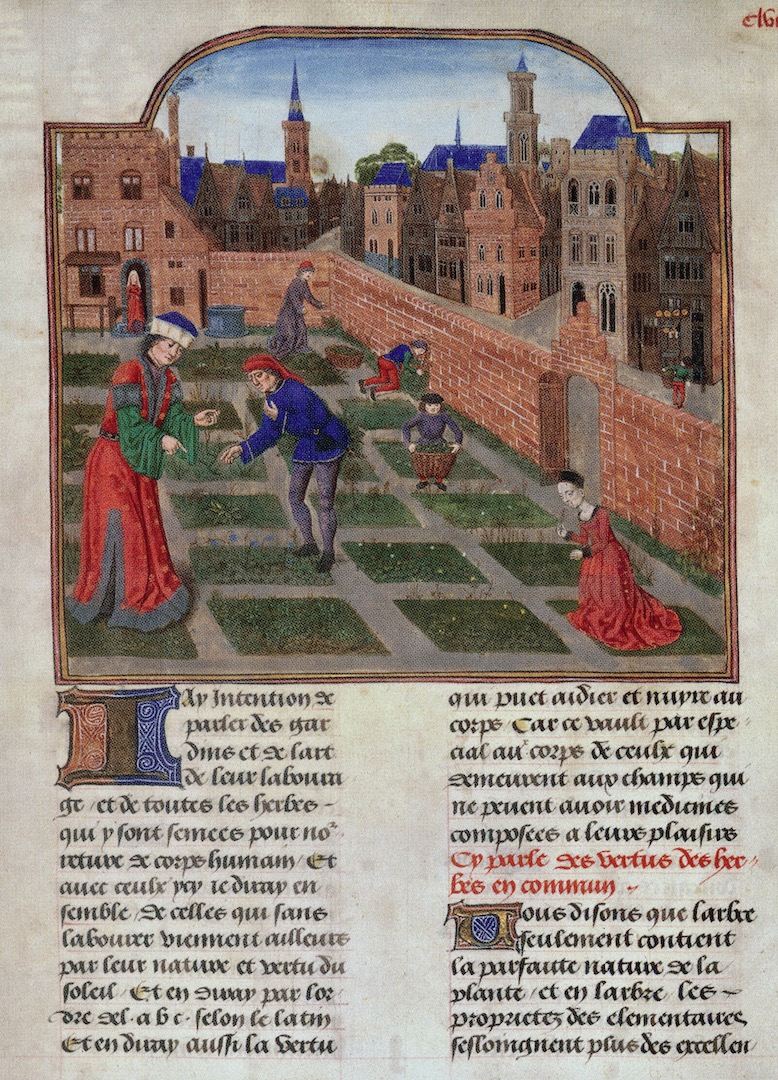 Jay Intention de
parler des gar
dins et de lart
de leur laboura
ge / et de toutes les herbes -
qui y sont semees pour nos̃
reture de corps humain / Et
auec ceulx ycy ie diray en
semble / de celles qui sans
labourer viennent ailleurs
par leur nature et vertu du
soleil / Et en diray par lor
dre del · a b c · selon le latin
Et en diray aussi la vertu
qui puet aidier et nuyre au
corps / Car ce vault par espe
cial au corps de ceulx qui
demeurent aux champs qui
ne peuent auoir medicines
composees a leurs plaisirs
Cy parle des vertus des her-
bes en commun
Nous disons que larbre
seulement contient
la parfaite nature de la
plante / et en larbre / les ~
proprietez des elementaires
sesloingnent plus des excellen